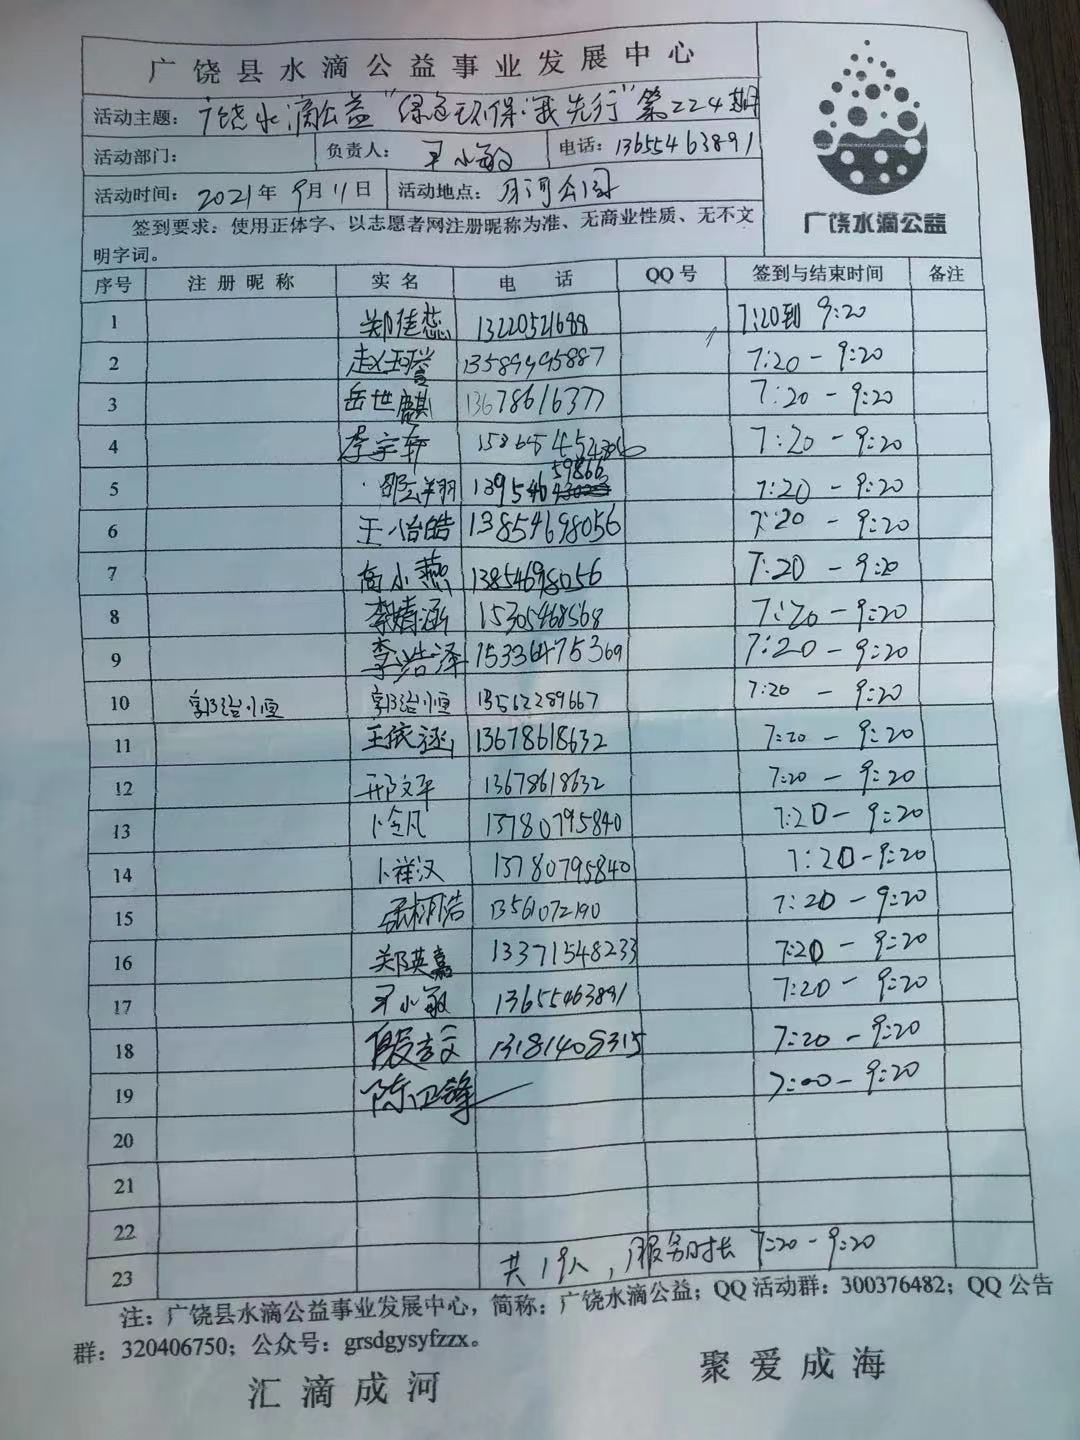 广饶县水滴公益事业发展中心
活动主题：广饶水滴公益“绿色环保·我先行”第224期
活动部门： 负责人：王小敏 电话：13655463891
活动时间：2021年9月11日 活动地点：月河公园
签到要求：使用正体字、以志愿者网注册昵称为准、无商业性质、无不文
明字词。
广饶水滴公益
序号 注册昵称 实名 电话 QQ号 签到与结束时间 备注
1 郑佳蕊 13220521688 7:20到 9:20
2 7:20-9:20
3 岳世麒 13678616377 7:20-9:20
4 李宇轩 7:20-9:20
5 7:20-9:20
6 王怡皓 13854698056 7:20-9:20
7 高小燕 13854698056 7:20-9:20
8 李婧涵 15305468568 7:20-9:20
9 李浩泽 15336475369 7:20-9:20
10 郭治恒 郭治恒 13562289667 7:20-9:20
11 王依涵 13678618632 7:20-9:20
12 邢文平 13678618632 7:20-9:20
13 卜令凡 13780795840 7:20-9:20
14 卜祥汉 13780795840 7:20-9:20
15 13561072190 7:20-9:20
16 郑英嘉 13371548233 7:20-9:20
17 王小敏 13655463891 7:20-9:20
18 13181408315 7:20-9:20
19 陈卫锋 7:00-9:20
20
21
22
23 共19人，服务时长 7:20-9:20
注：广饶县水滴公益事业发展中心，简称：广饶水滴公益；QQ活动群：300376482；QQ公告
群：320406750；公众号：grsdgysyfzzx。
汇滴成河 聚爱成海